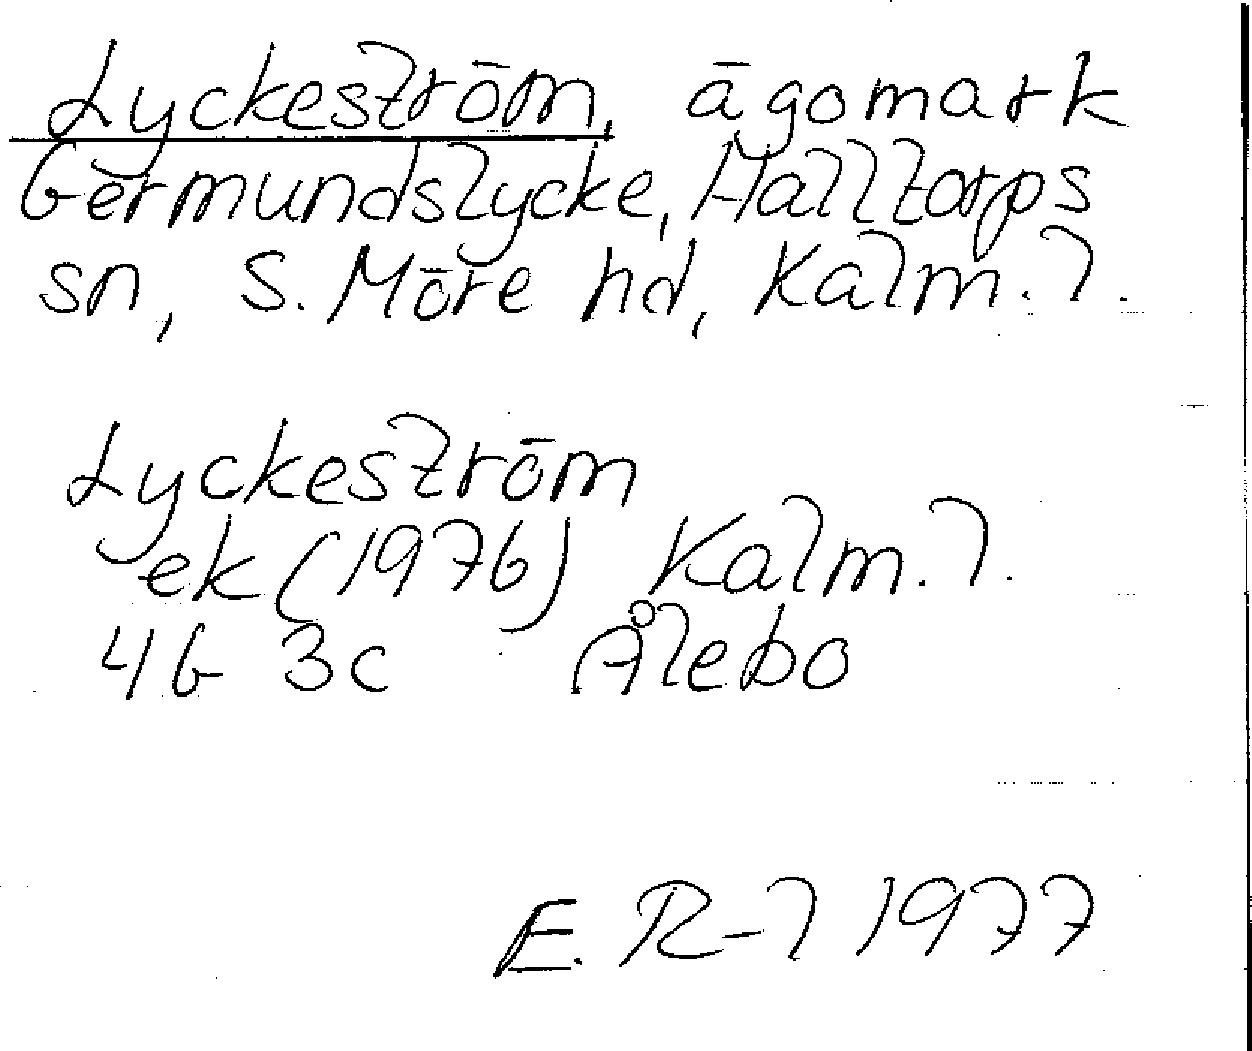 Lyckeström, ägomark
Germundslycke, Halltorps
sn, S. Möre hd, Kalm. l.
Lyckeström
ek (1976) Kalm. l.
4G 3c Ålebo
E. R-l 1977